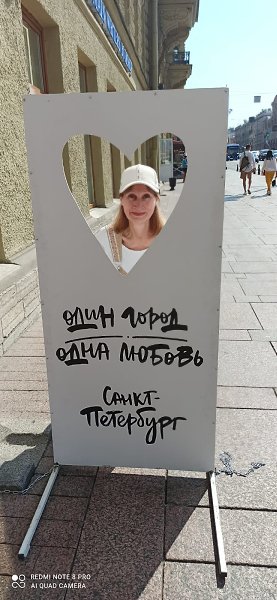 один город
одна любовь
Санкт-
Петербург
REDMI NOTE 8 PRO
AI QUAD CAMERA